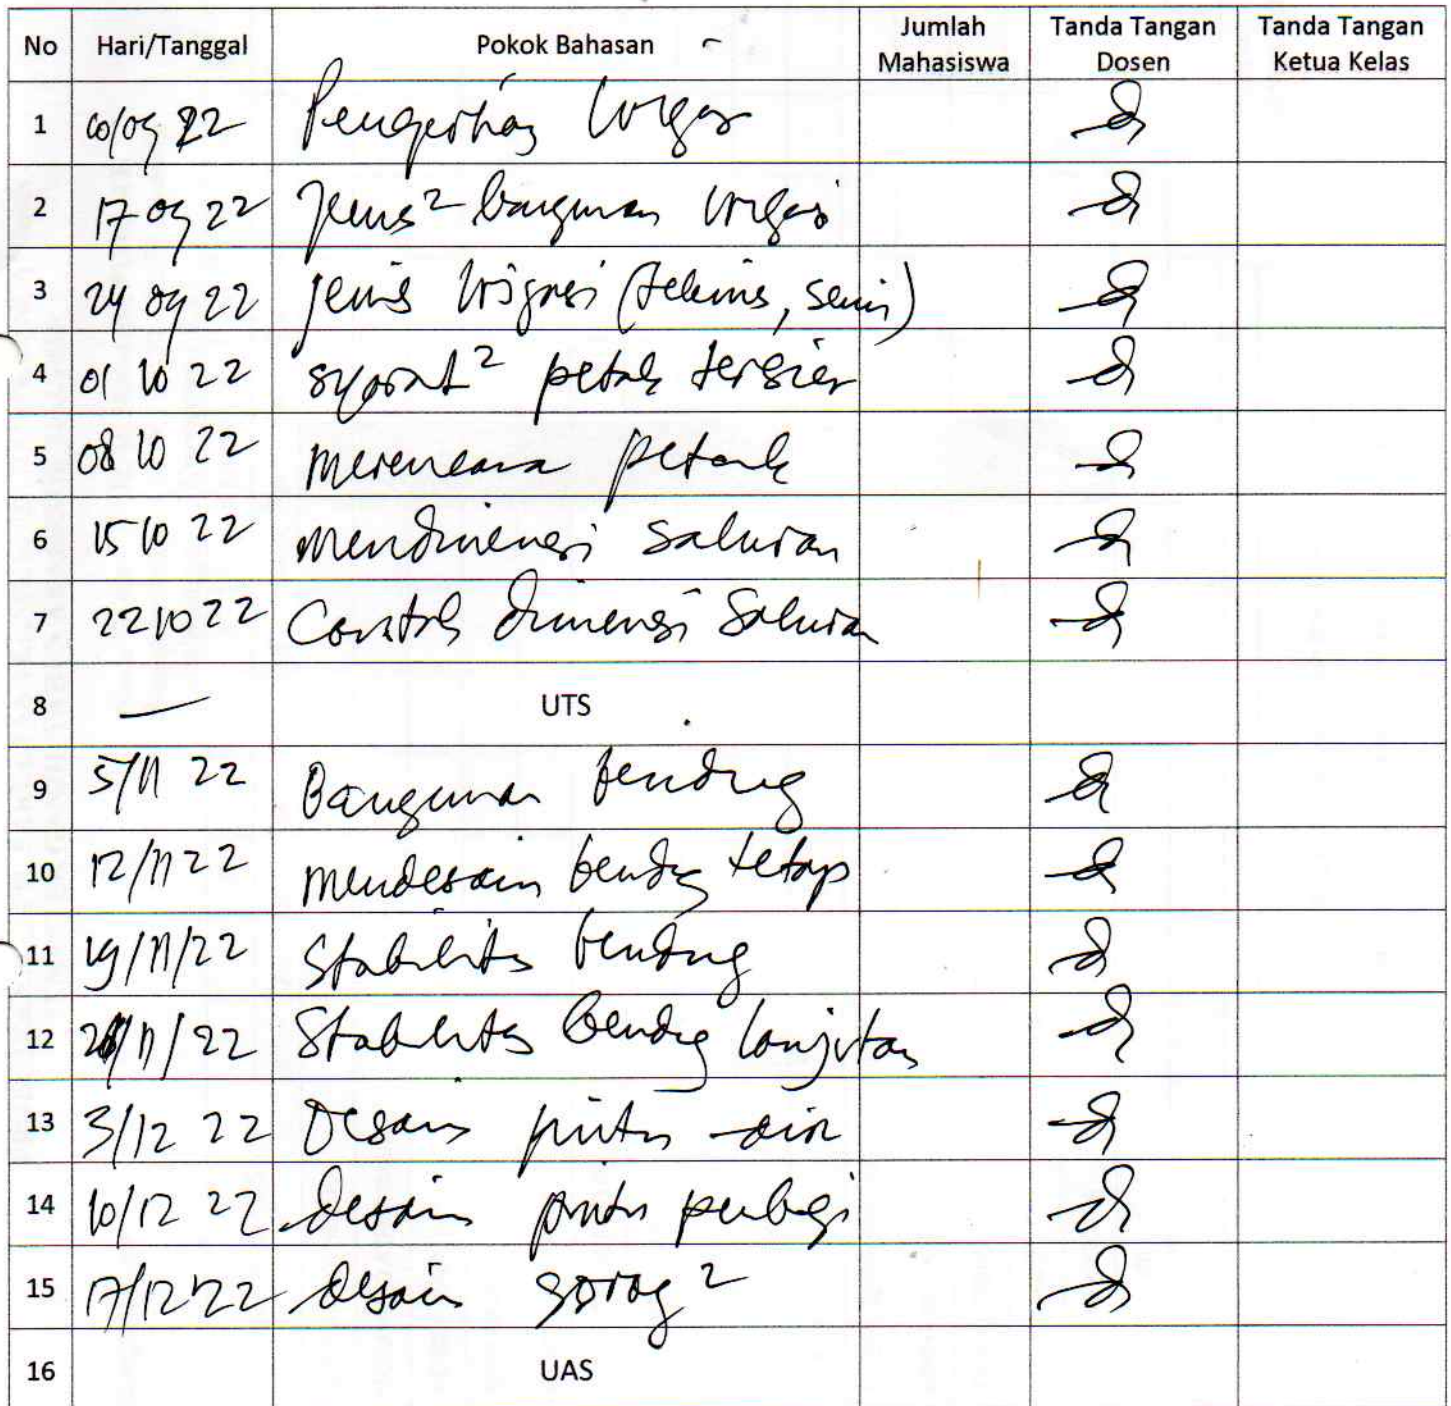 No Hari/Tanggal Pokok Bahasan Jumlah Mahasiswa Tanda Tangan Dosen Tanda Tangan Ketua Kelas
1 10/09 22 Pengertian Irigasi
2 17 09 22 Jenis² bangunan irigasi
3 24 09 22 Jenis Irigasi (teknis, semi)
4 01 10 22 syarat² petak tersier
5 08 10 22 merencana petak
6 15 10 22 mendimensi saluran
7 22 10 22 Contoh dimensi Saluran
8 — UTS
9 5/11 22 Bangunan bendung
10 12/11 22 mendesain bendung tetap
11 19/11/22 Stabilitas bendung
12 /11/22 Stabilitas bendung lanjutan
13 3/12 22 Desain pintu air
14 10/12 22 desain pintu pembagi
15 17/12 22 desain gorong²
16 UAS